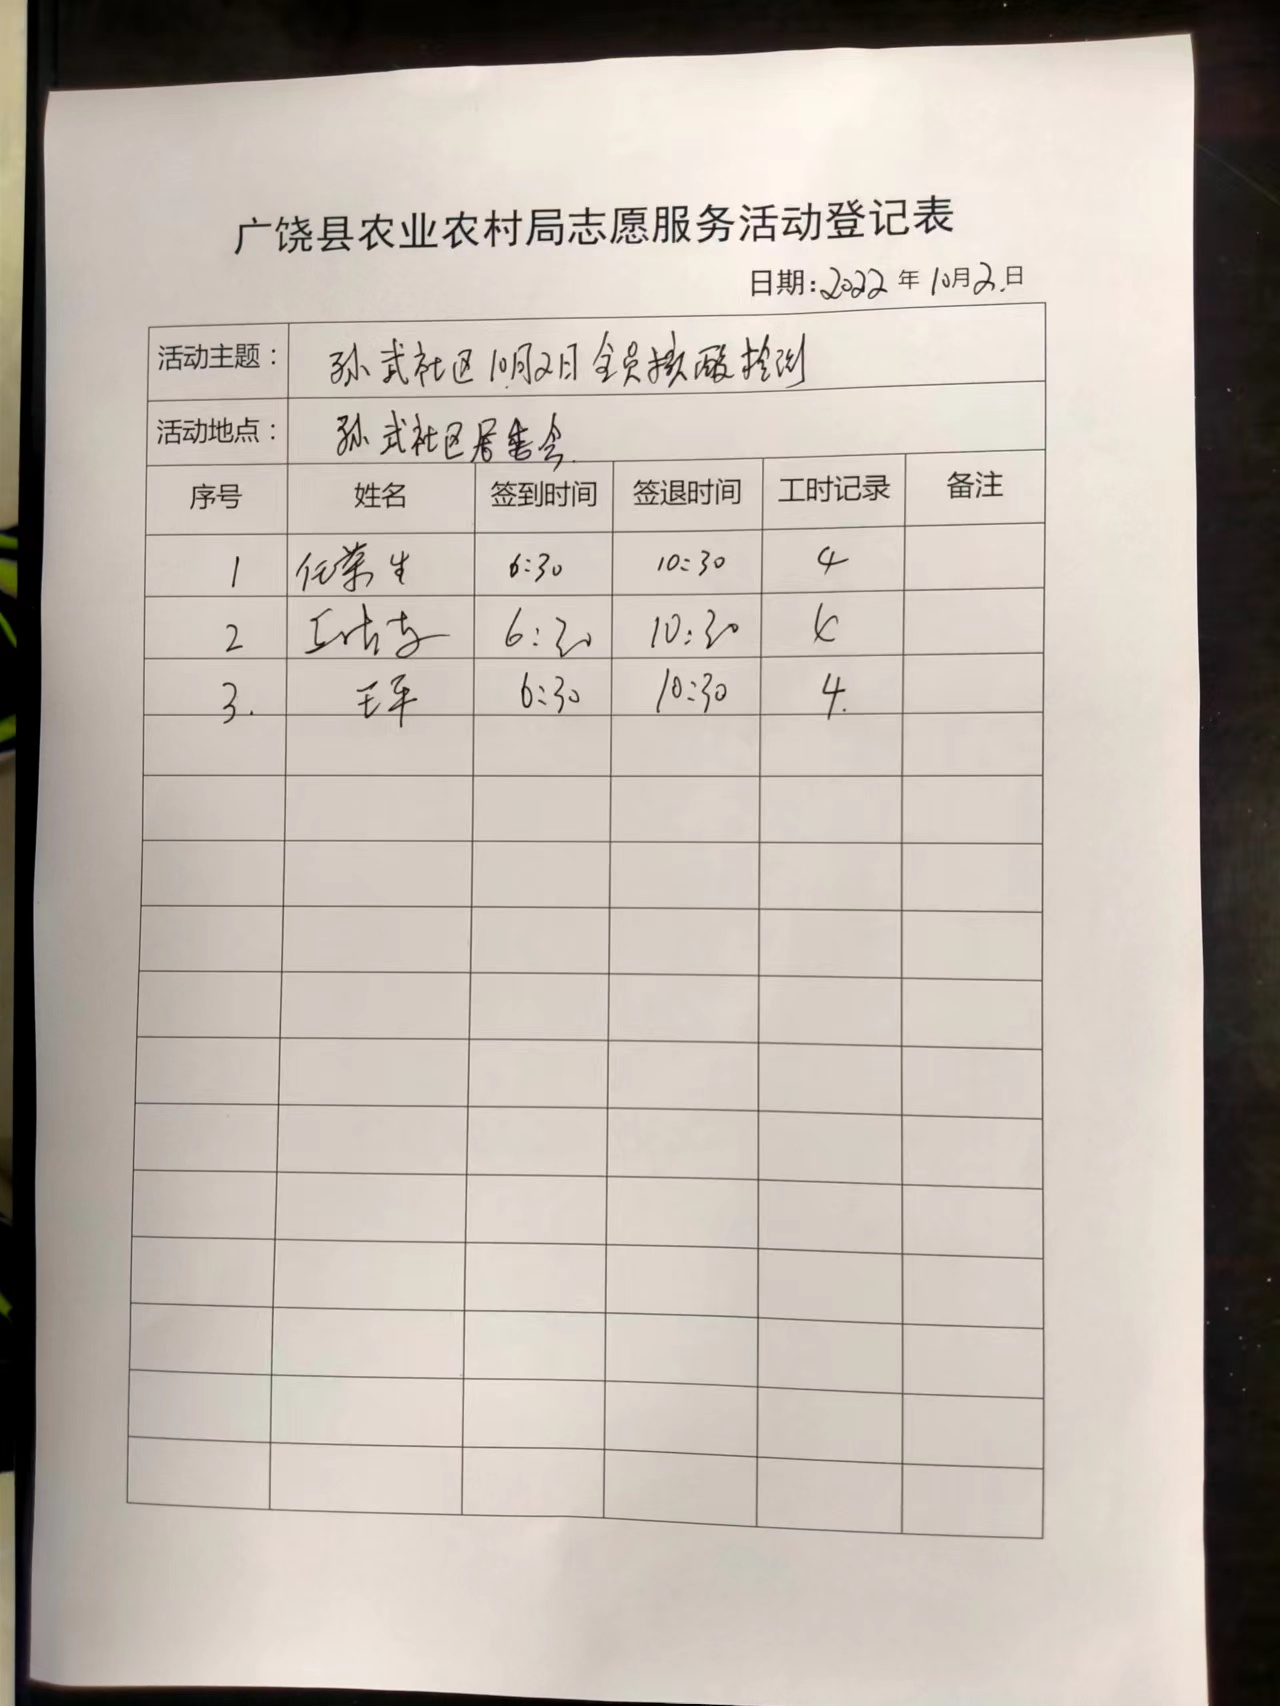 广饶县农业农村局志愿服务活动登记表
日期:2022年10月2日
活动主题: 孙武社区10月2日全员核酸检测
活动地点: 孙武社区居委会
序号 姓名 签到时间 签退时间 工时记录 备注
1 任荣生 6:30 10:30 4
2 6:30 10:30 4
3. 王平 6:30 10:30 4.